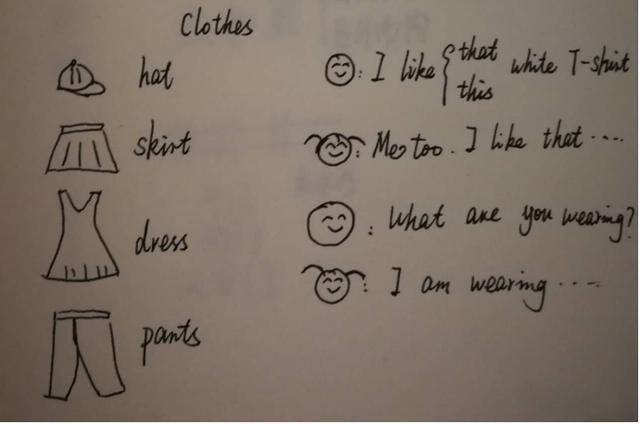 Clothes
hat
skirt
dress
pants
: I like { that white T-shirt
this
: Me too. I like that ····
: What are you wearing?
: I am wearing ····